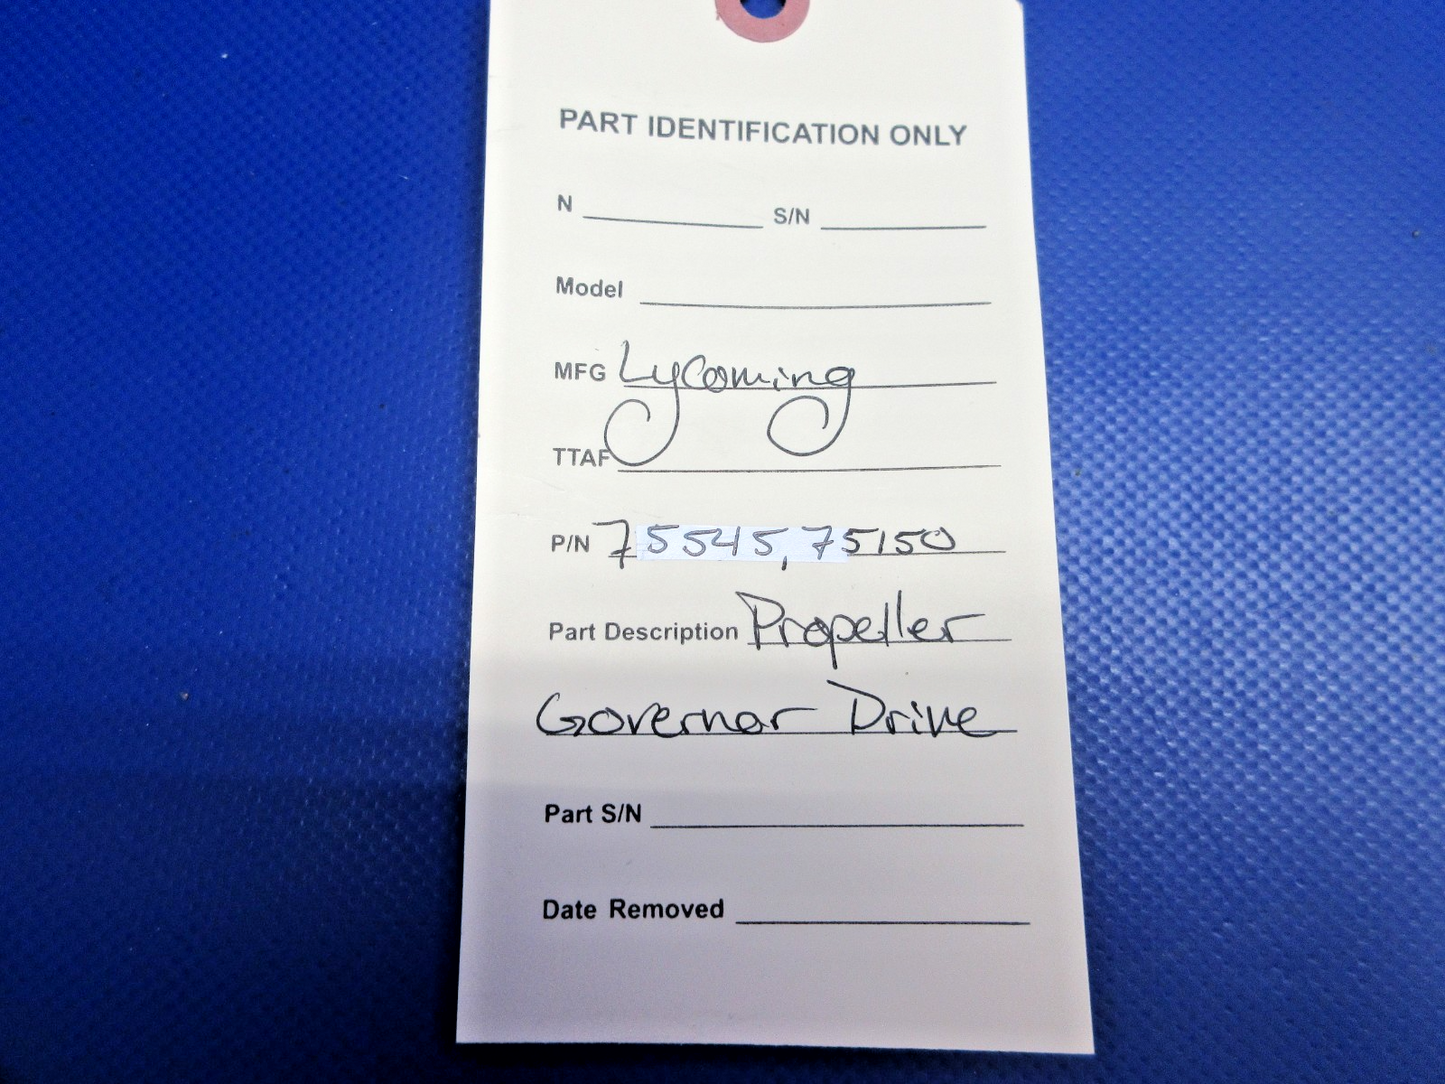 PART IDENTIFICATION ONLY
N S/N
Model
MFG Lycoming
TTAF
P/N 75545, 75150
Part Description Propeller
Governor Drive
Part S/N
Date Removed